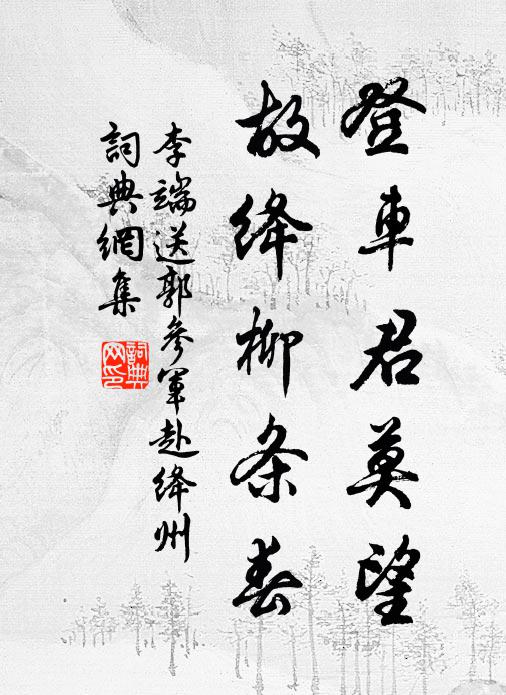 登車君莫望
故绛柳条春
李端送郭參軍赴绛州
詞典網集
詞典网印